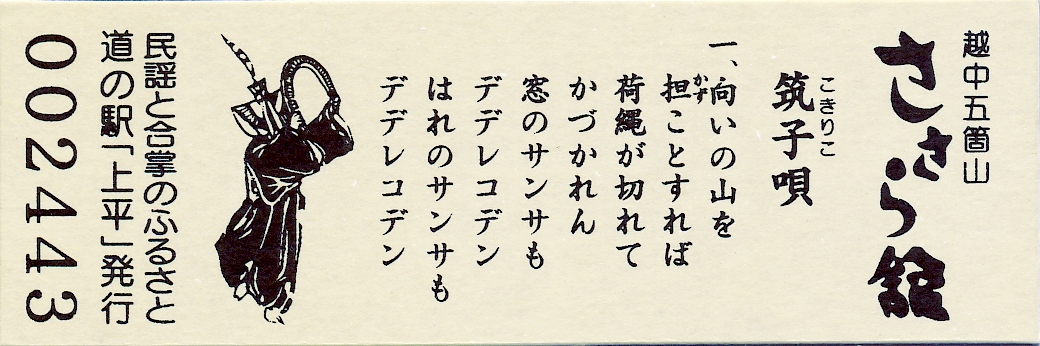 越中五箇山
ささら館
こきりこ
筑子唄
一、向いの山を
かず
担ことすれば
荷縄が切れて
かづかれん
窓のサンサも
デデレコデン
はれのサンサも
デデレコデン
民謡と合掌のふるさと
道の駅「上平」発行
002443